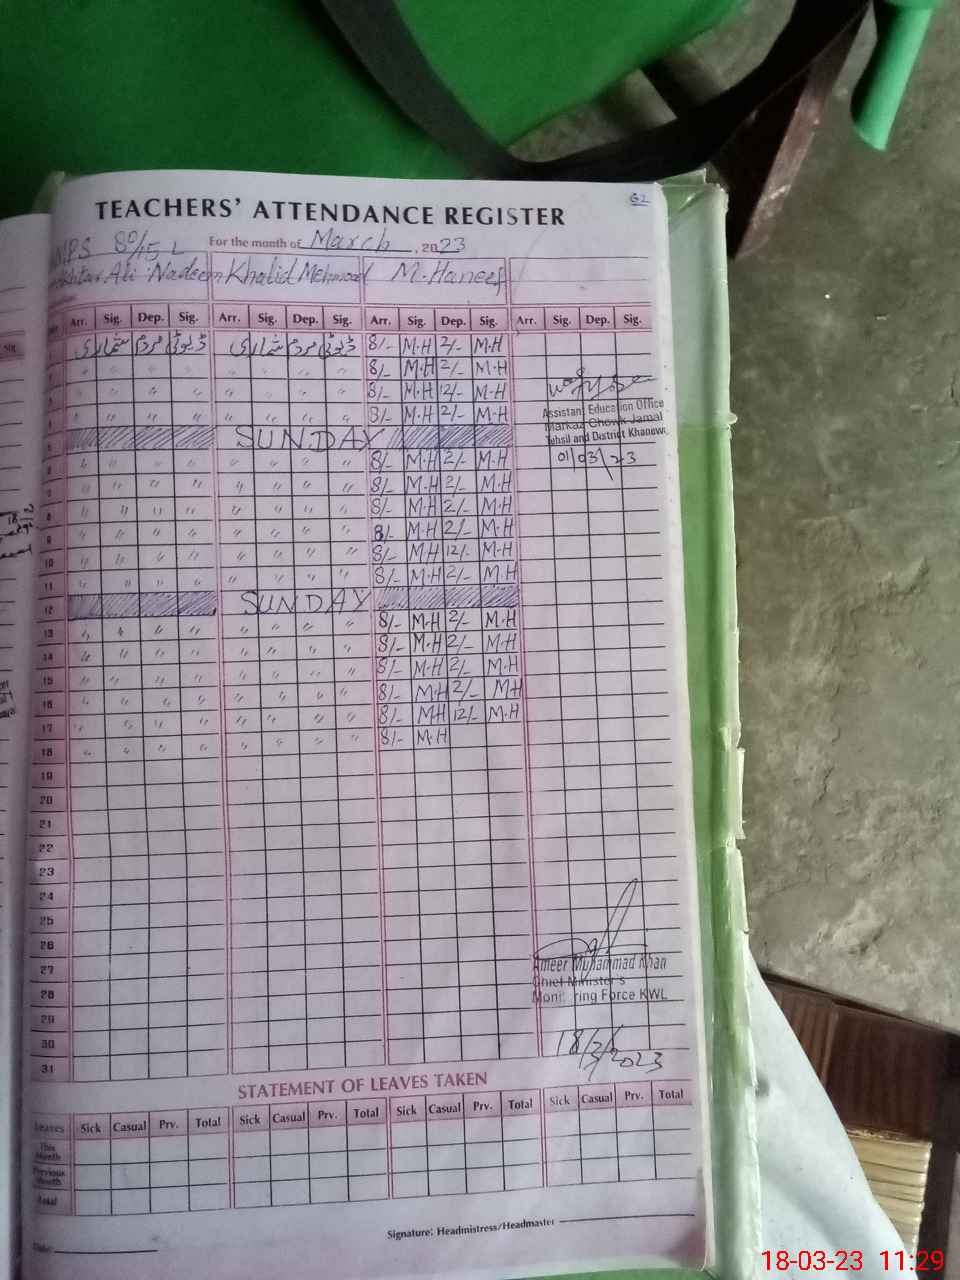 G2
TEACHERS' ATTENDANCE REGISTER
MPS 80/15 L For the month of March, 2023
Ali Nadeem Khalid Mehmood M. Haneef
Arr. Sig. Dep. Sig. Arr. Sig. Dep. Sig. Arr. Sig. Dep. Sig. Arr. Sig. Dep. Sig.
ڈیوٹی مردم شماری ڈیوٹی مردم شماری 8/- M.H 2/- M.H
" " " " " " " " 8/- M.H 2/- M.H
" " " " " " " " 8/- M.H 12/- M.H
" " " " " " " " 8/- M.H 2/- M.H
Assistant Education Office
Markaz Chowk Jamal
Tehsil and District Khanew
01/03/23
SUNDAY
" " " " " " " " 8/- M.H 2/- M.H
" " " " " " " " 8/- M.H 2/- M.H
8 " " " " " " " " 8/- M.H 2/- M.H
9 " " " " " " " " 8/- M.H 2/- M.H
10 " " " " " " " " 8/- MH 12/- M.H
11 " " " " " " " " 8/- M.H 2/- M.H
12 SUNDAY
13 " " " " " " " " 8/- M.H 2/- M.H
14 " " " " " " " " 8/- M.H 2/- M.H
15 " " " " " " " " 8/- M.H 2/- M.H
16 " " " " " " " " 8/- MH 2/- MH
17 " " " " " " " " 8/- MH 12/- M.H
18 " " " " " " " " 8/- M.H
19
20
21
22
23
24
25
26
27
28
29
30
31
Ameer Muhammad Khan
Chief Minister's
Monitoring Force KWL
18/3/2023
STATEMENT OF LEAVES TAKEN
Leaves Sick Casual Prv. Total Sick Casual Prv. Total Sick Casual Prv. Total Sick Casual Prv. Total
This Month
Previous Month
Total
Date: Signature: Headmistress/Headmaster
18-03-23 11:29